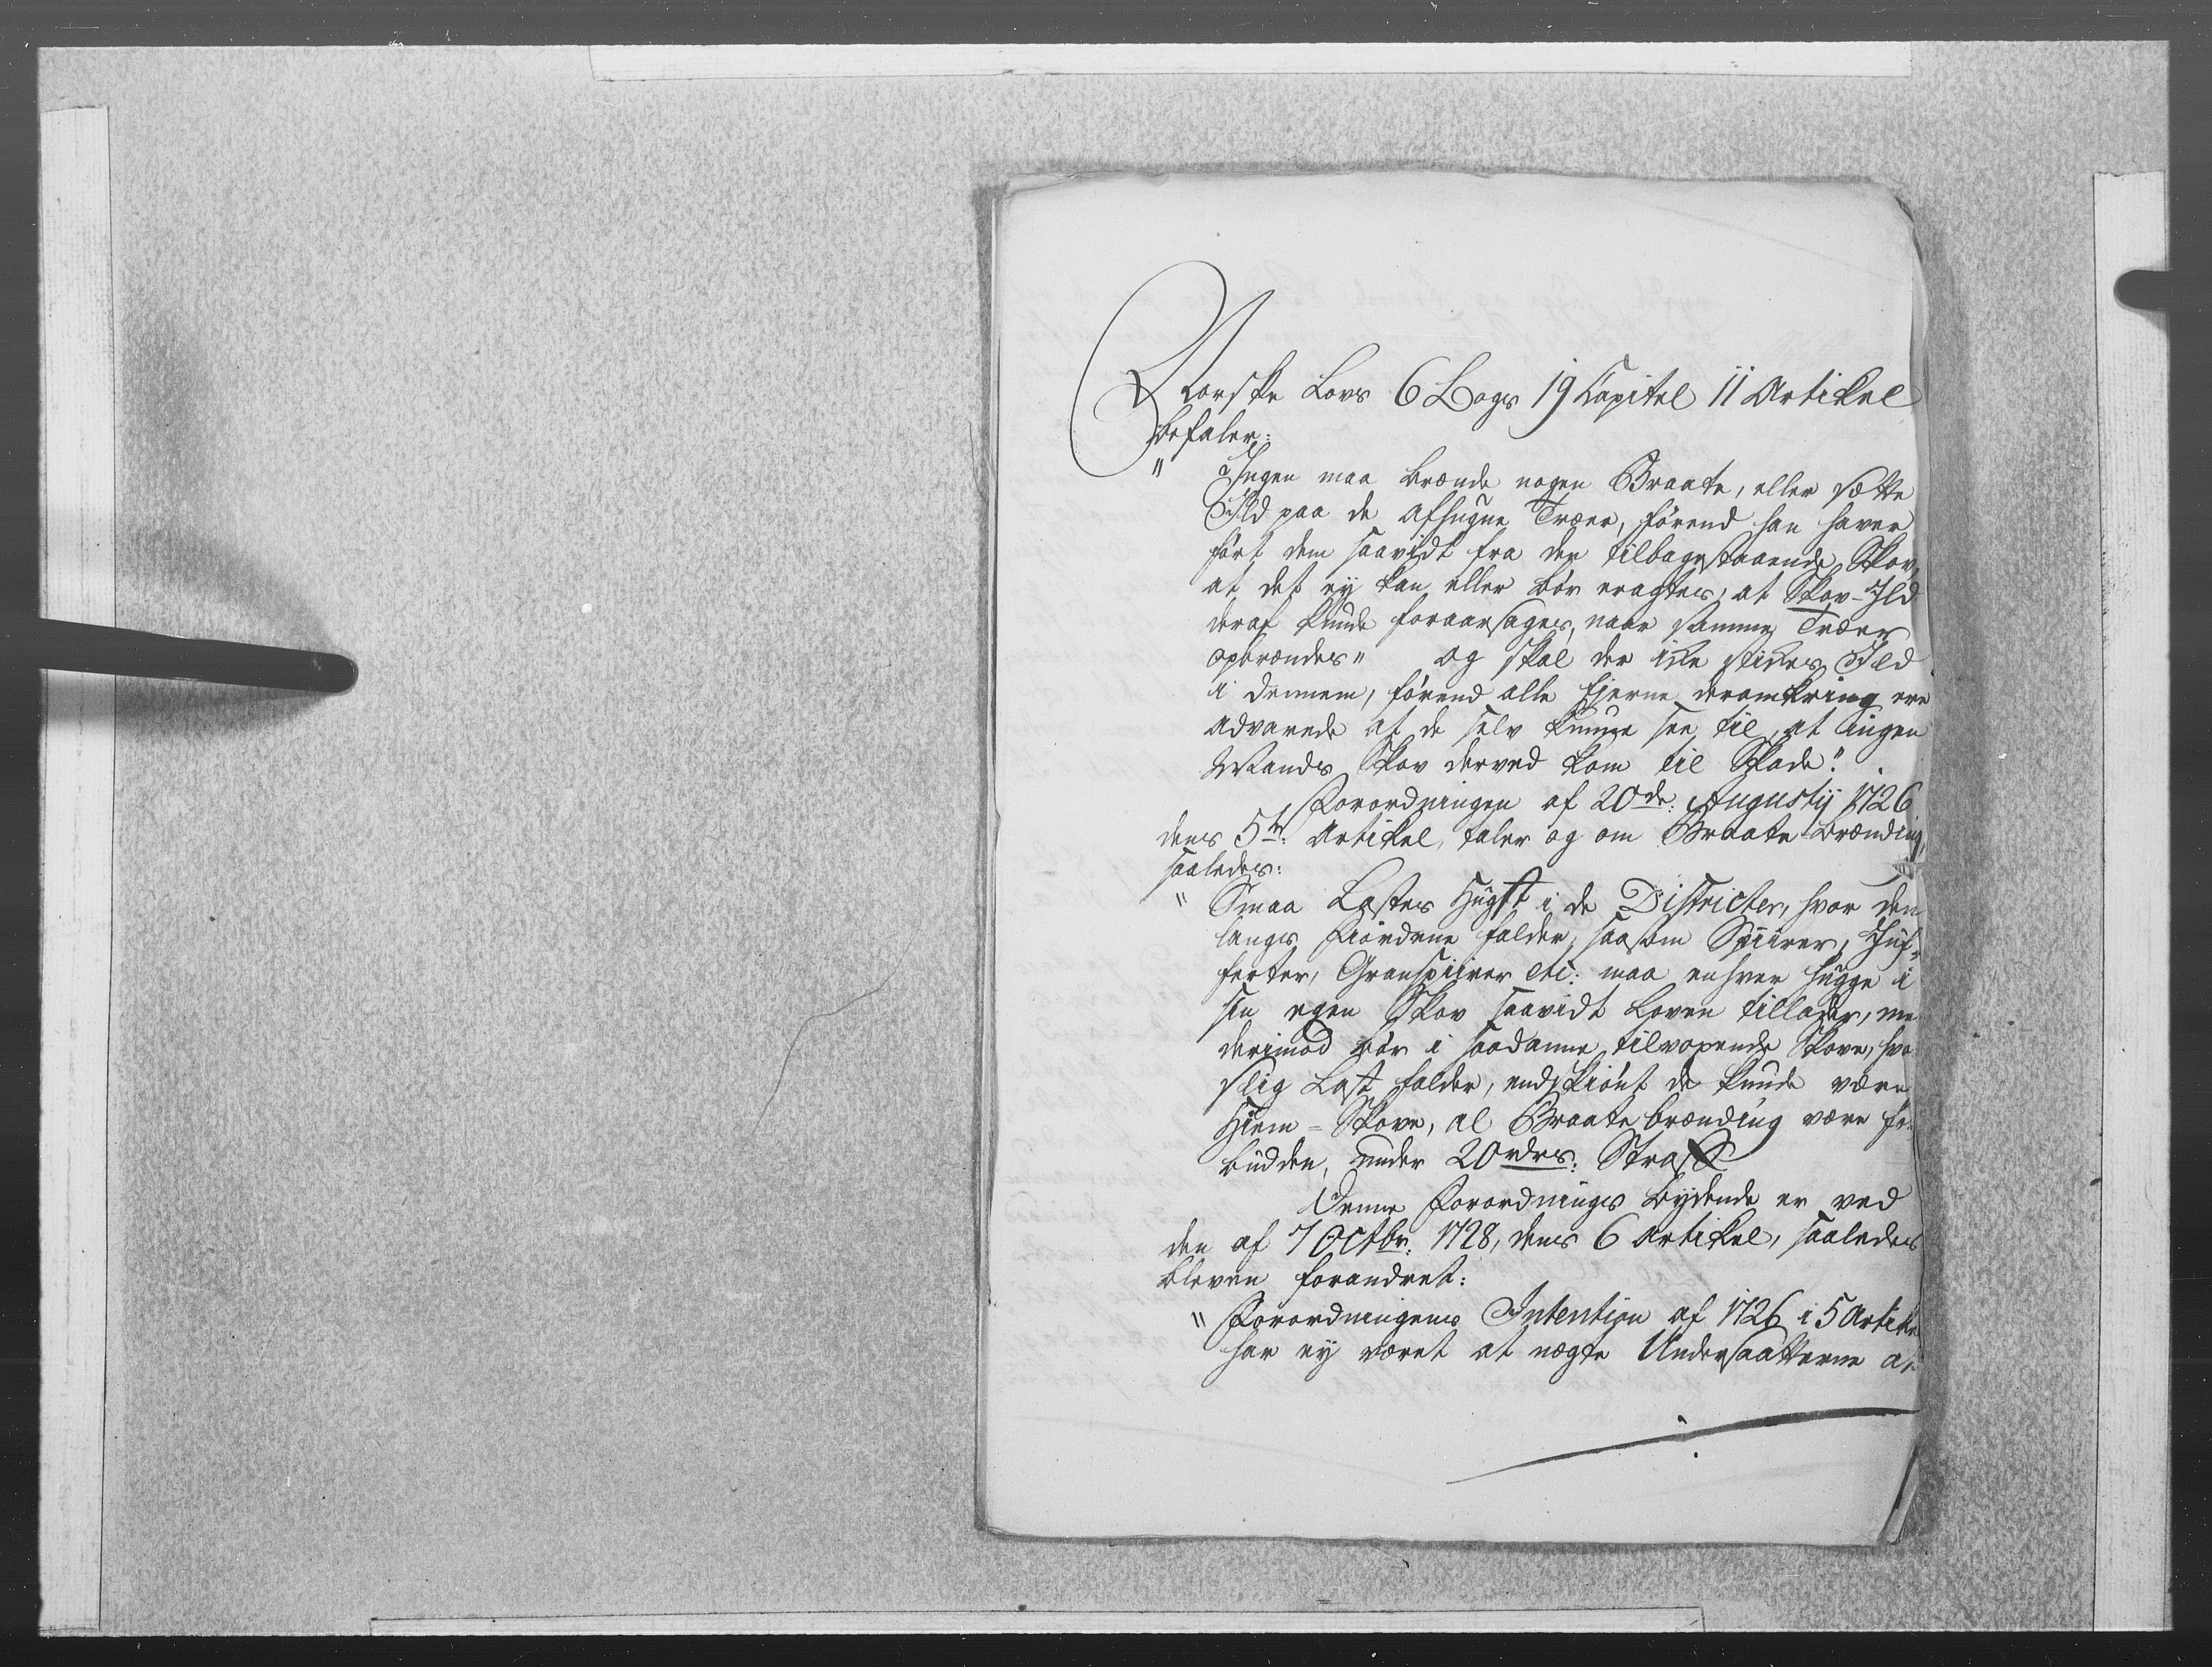 Norske Lovs 6 Bogs 19 Capitel 11 Artikel
befaler:
" Ingen maa brænde nogen Braate, eller sætte
Ild paa de afhugne Træer, førend han haver
ført dem saavidt fra den tilbagestaaende Skov,
at det ey kan eller bør eragtes, at Skov-Ild
deraf kunde foraarsages, naar samme Træer
opbrændes" og skal der ikke stikkes Ild
i dennem, førend alle Ejerne deromkring ere
advarede at de selv kunde see til, at ingen
Mands Skov derved kom til Skade."
Forordningen af 20de: Augustij 1726
dens 5te: Artikel, taler og om Braate brænding,
saaledes:
" Smaa Lastes Hugst i de Districter, hvor den
langs Fiordene falder, saasom Spiirer, Juf-
ferter, Granspiirer etc: maa enhver hugge i
sin egen Skov saavidt Loven tillader, me
derimod bør i saadanne tilvoxende Skove, hvo
slig Last falder, endskiønt de kunde være
Hiem-Skove, al Braate brænding være for-
budden, under 20 rdrs: Straf
Denne Forordnings bydende er ved
den af 7 Octbr: 1728, dens 6 Artikel, saaledes
bleven forandret:
" Forordningens Intention af 1726 i 5 Artike
har ey været at nægte Undersaatterne at